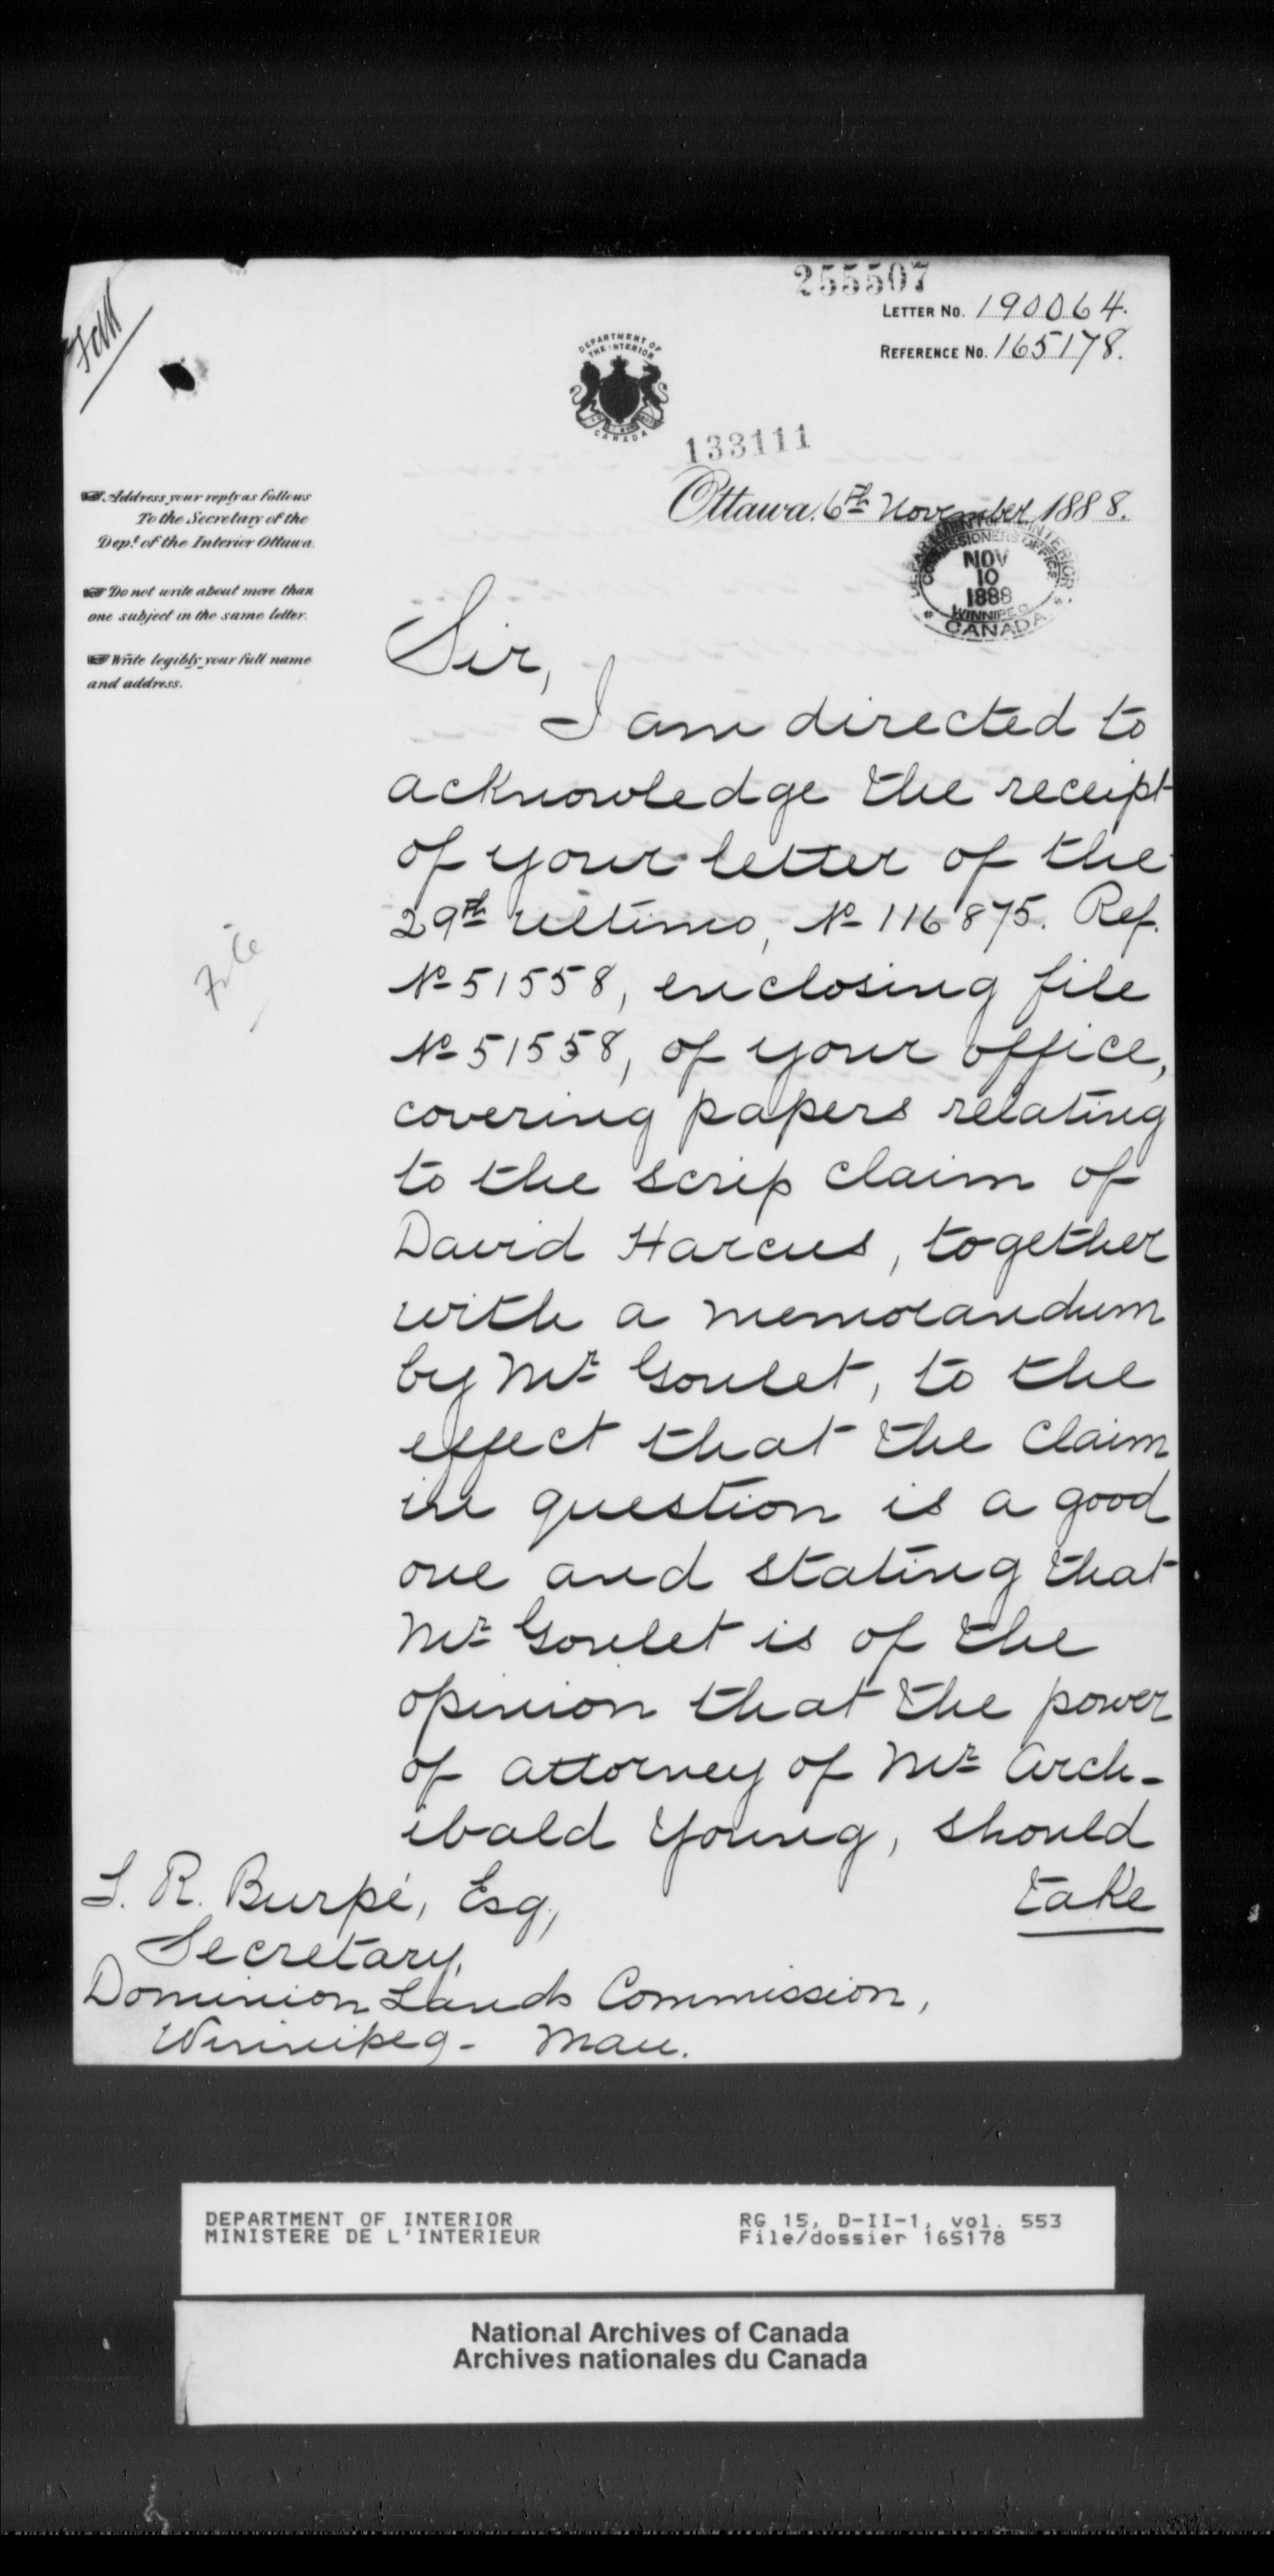 255507
LETTER No. 190064.
REFERENCE No. 165178.
DEPARTMENT OF
THE INTERIOR
CANADA
133111
Ottawa, 6th November 1888.
DEPARTMENT OF THE INTERIOR
COMMISSIONERS OFFICE
NOV
10
1888
WINNIPEG
CANADA
Address your reply as follows
To the Secretary of the
Dept. of the Interior Ottawa.
Do not write about more than
one subject in the same letter.
Write legibly your full name
and address.
File
Sir,
I am directed to
acknowledge the receipt
of your letter of the
29th ultimo, No 116875. Ref.
No 51558, enclosing file
No 51558, of your office,
covering papers relating
to the scrip claim of
David Harcus, together
with a memorandum
by Mr Goulet, to the
effect that the claim
in question is a good
one and stating that
Mr Goulet is of the
opinion that the power
of attorney of Mr Arch-
ibald Young, should
take
L. R. Burpé, Esq,
Secretary,
Dominion Lands Commission,
Winnipeg - Man.
DEPARTMENT OF INTERIOR
MINISTERE DE L'INTERIEUR
RG 15, D-II-1, vol. 553
File/dossier 165178
National Archives of Canada
Archives nationales du Canada